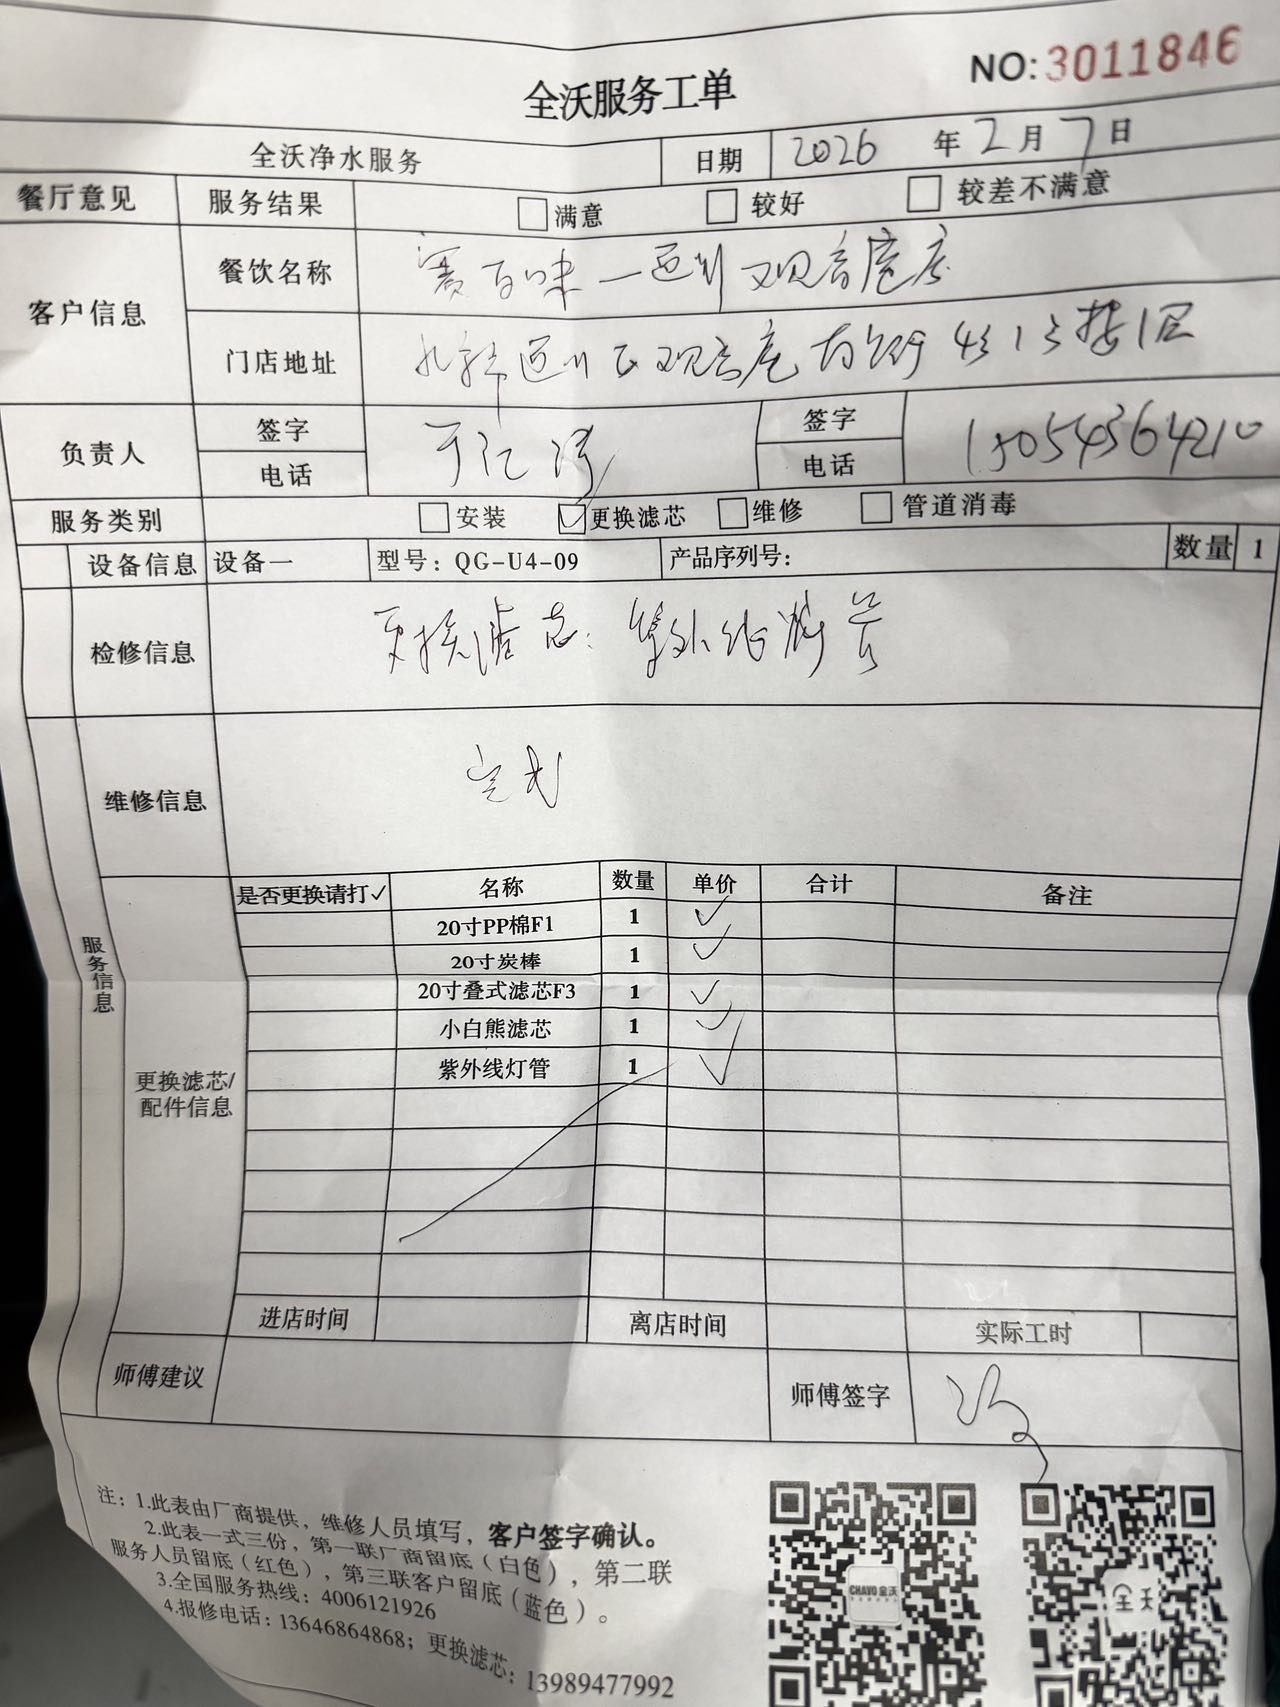 NO:3011846
全沃服务工单
全沃净水服务 日期 2026 年 2 月 7 日
餐厅意见 服务结果 满意 较好 较差不满意
客户信息 餐饮名称 百味一 观音店
门店地址 观音 1号楼1层
负责人 签字 签字
电话 电话 15054364210
服务类别 安装 ✓更换滤芯 维修 管道消毒
设备信息 设备一 型号：QG-U4-09 产品序列号： 数量 1
检修信息 更换滤芯：紫外线灯管
维修信息 完成
服务信息
更换滤芯/
配件信息
是否更换请打✓ 名称 数量 单价 合计 备注
20寸PP棉F1 1 ✓
20寸炭棒 1 ✓
20寸叠式滤芯F3 1 ✓
小白熊滤芯 1 ✓
紫外线灯管 1 ✓
进店时间 离店时间 实际工时
师傅建议 师傅签字
注：1.此表由厂商提供，维修人员填写，客户签字确认。
2.此表一式三份，第一联厂商留底（白色），第二联
服务人员留底（红色），第三联客户留底（蓝色）。
3.全国服务热线：4006121926
4.报修电话：13646864868；更换滤芯：13989477992
CHAVO全沃
全沃